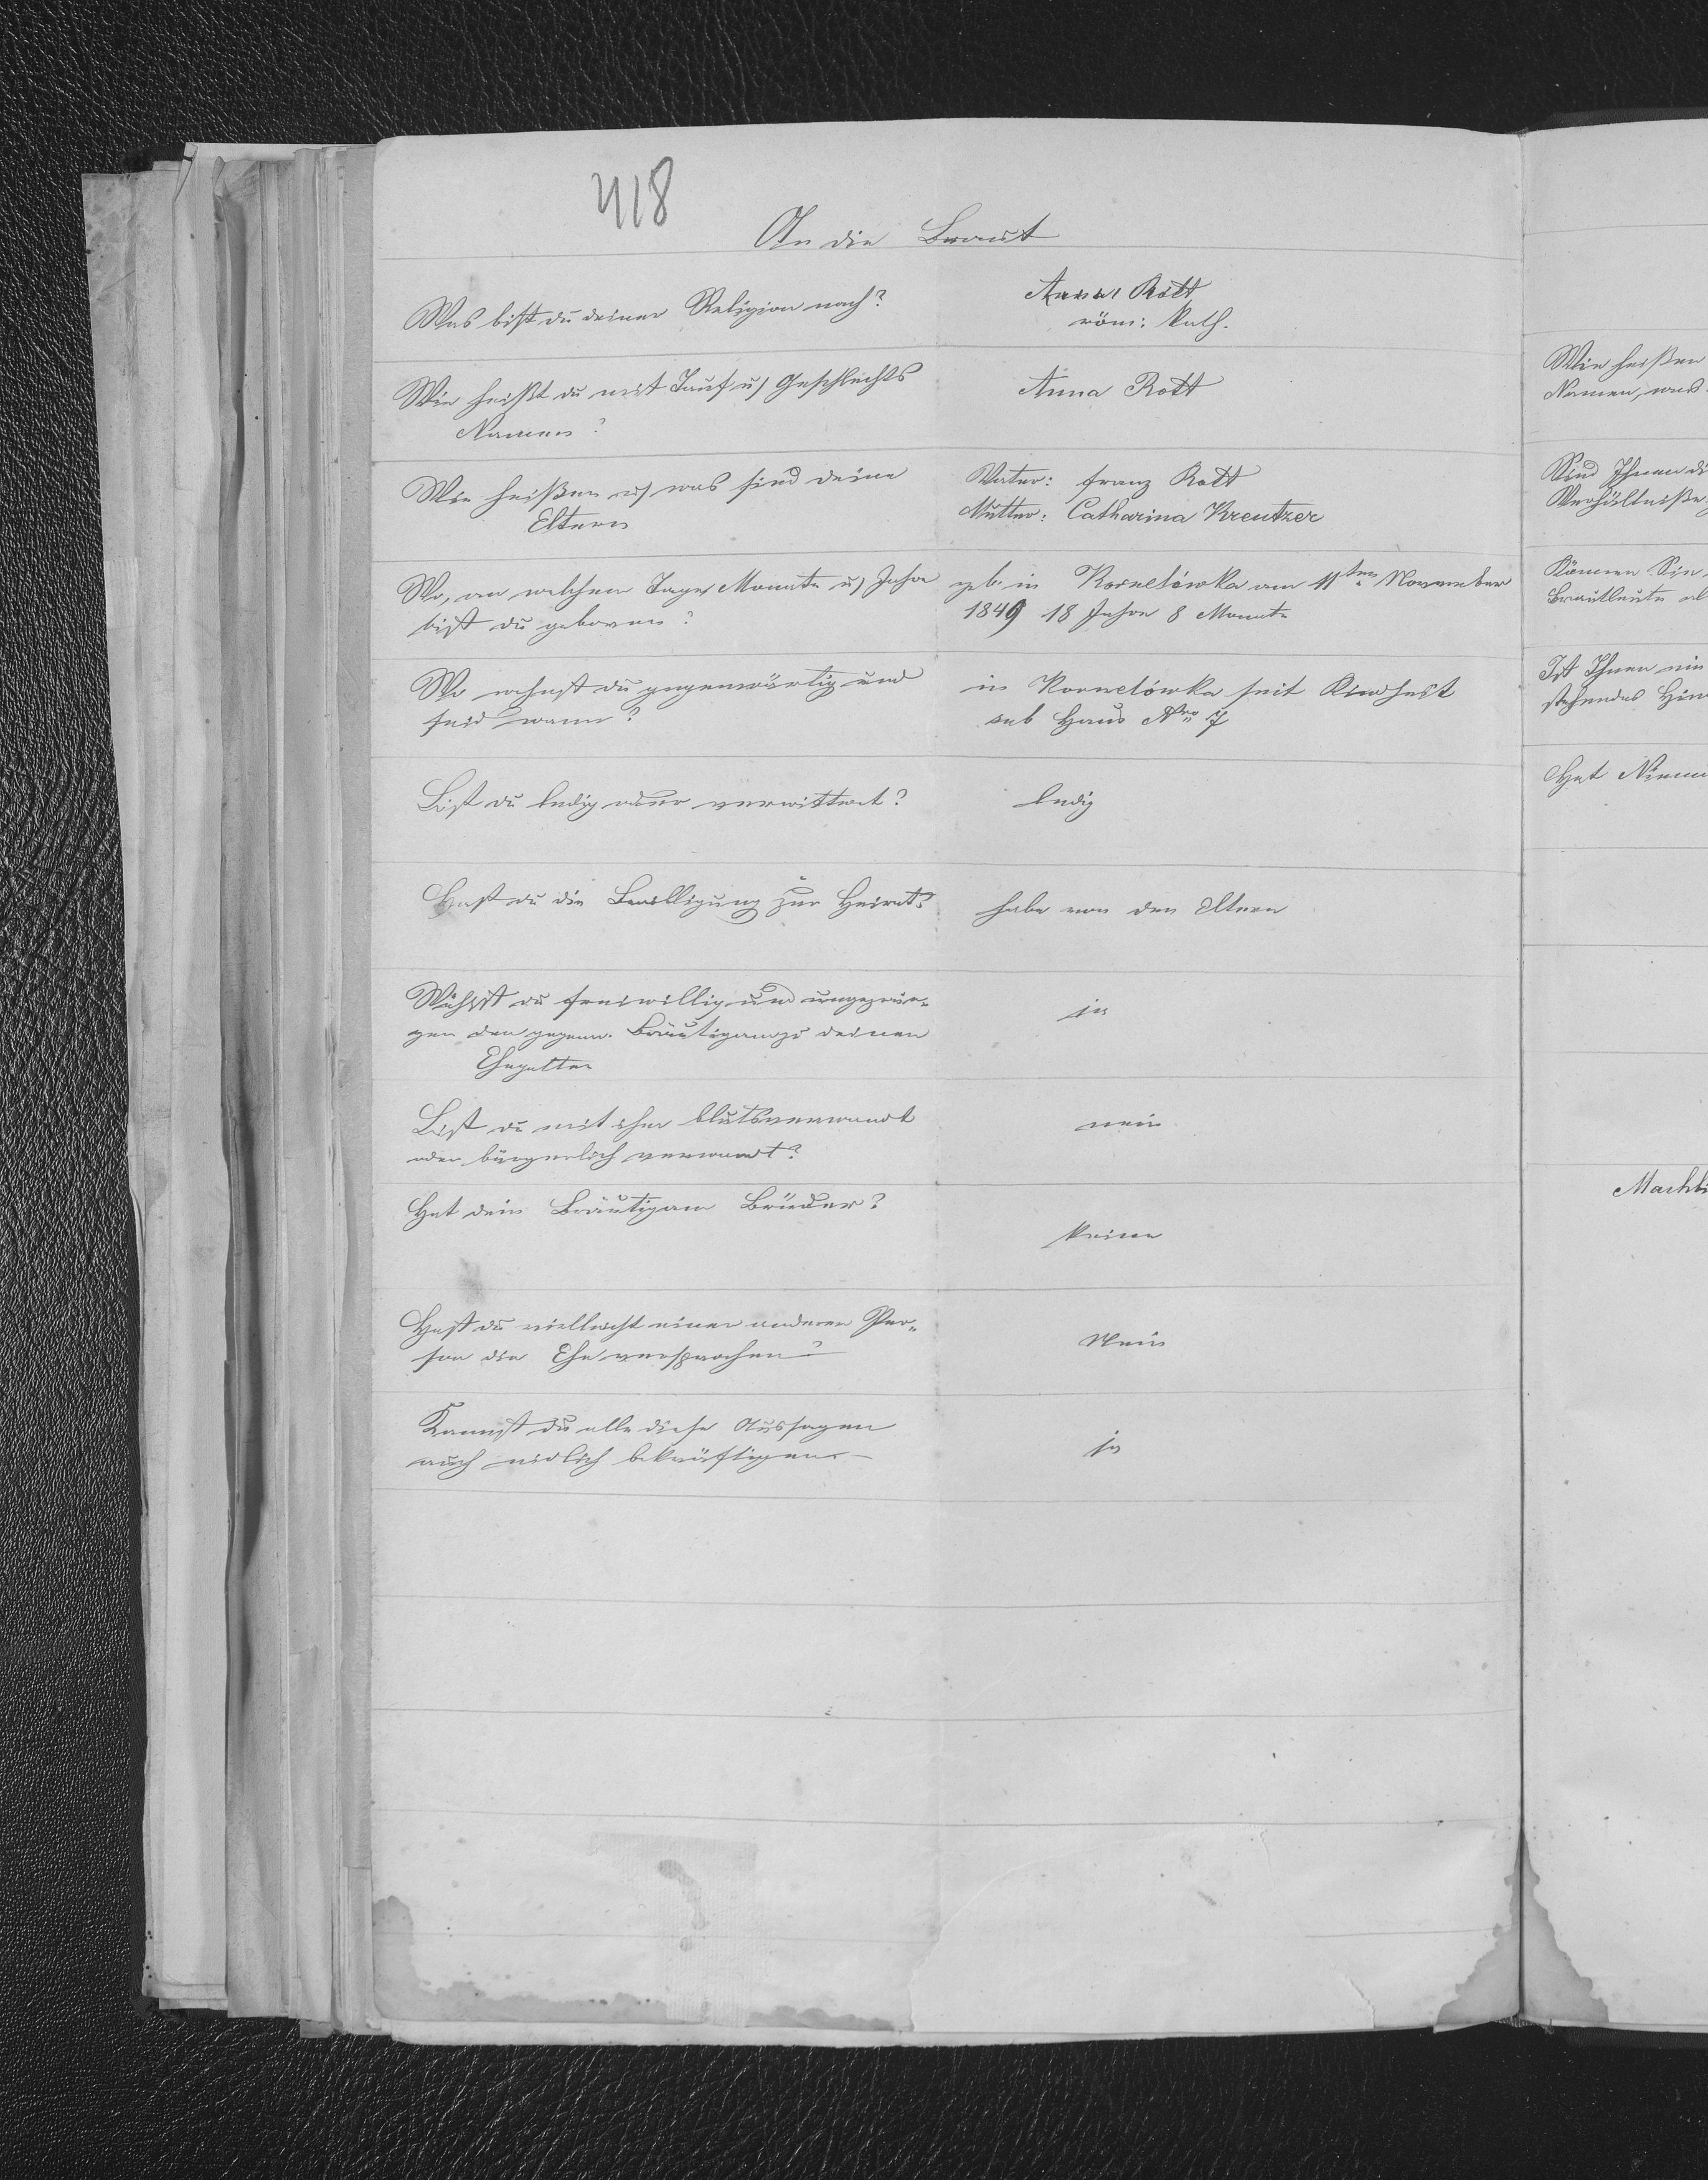 418
An die Braut
Was bist du deiner Religion nach?
Anna Rott
röm: kath.
Wie heißt du mit Tauf u Geschlechts
Namen?
Anna Rott
Wie heißen u was sind deine
Eltern
Vater: Franz Rott
Mutter: Catharina Kreutzer
Wo, an welchem Tage, Monate u Jahre
bist du geboren?
geb. in Kornelówka am 11ten November
1849 18 Jahre 8 Monate
Wo wohnst du gegenwärtig und
seid wann?
in Kornelówka seit Kindheit
sub Haus Nro 7
Bist du ledig oder verwittwet?
ledig
Hast du die Bewilligung zur Heirat?
habe von den Eltern
Wählst du freiwillig und ungezwun„
gen den gegenw. Bräutigam zu deinen
Ehegatten
ja
Bist du mit ihm blutsverwandt
oder bürgerlich verwandt?
nein
Hat dein Bräutigam Brüder?
keine
Hast du vielleicht einer anderen Per„
son die Ehe versprochen?
Nein
Kannst du alle diese Aussagen
auch eidlich bekräftigen
ja
Wie heißen
Namen, was
Sind Ihnen di
Verhältniße
Können Sie
Brautleute al
Ist Ihnen ein
stehendes Hin
Hat Niema